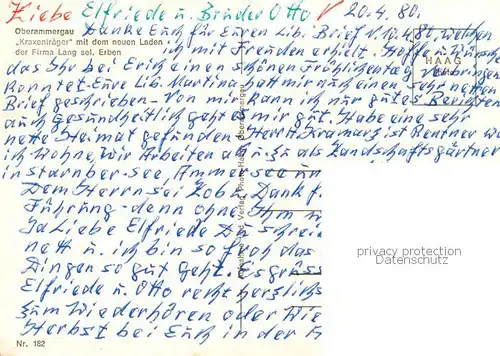 Liebe Elfriede u. Bruder Otto 20.4.80.
Oberammergau
„Kraxenträger" mit dem neuen Laden
der Firma Lang sel. Erben
HAAG
Danke Euch für Euren lib. Brief v. 10.4.80, welchen
ich mit Freuden erhilt. Hoffe u. Wünsche
das Ihr bei Erich einen schönen Fröhlichen tag verbringen
konntet. Eure lib. Martina hatt mir auch einen sehr netten
Brief geschrieben - Von mir kann ich nur gutes Berichten
auch Gesundheitlich geht es mir gut. Habe eine sehr
nette Heimat gefunden. Herr H. Kramarz ist Rentner wo
ich Wohne, Wir Arbeiten ab u. zu als Landschaftsgärtner
in Starnber-see, Ammer-see un
Dem Herrn sei Lob u. Dank f
Führung - denn ohne Ihm
Ja Liebe Elfriede Du schrei
nett u. ich bin so froh das
Dingen so gut geht. Es grüss
Elfriede u. Otto recht herzlichs
zum Wiederhören oder Wie
Herbst bei Euch in der H
privacy protection
Datenschutz
Nr. 182